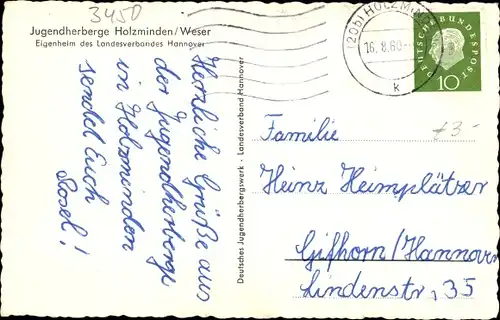 3450
Jugendherberge Holzminden/Weser
Eigenheim des Landesverbandes Hannover
Herzliche Grüße aus
der Jugendherberge
in Holzminden
sendet Euch
Deutsches Jugendherbergswerk · Landesverband Hannover
(20b) HOLZMIN
16.8.60
k
DEUTSCHE BUNDESPOST
10
€3-
Familie
Heinz Heimplätzer
Gifhorn/Hannover
Lindenstr, 35